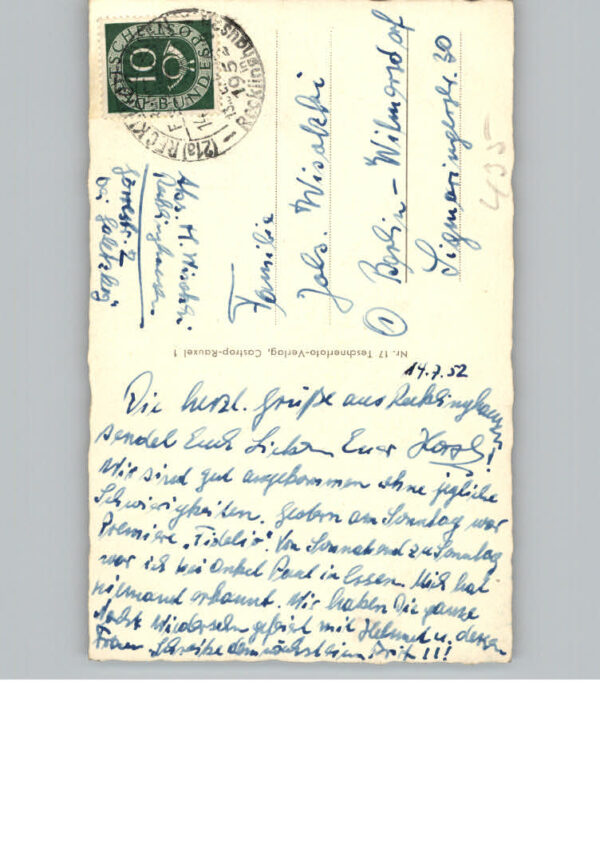 14.7.52
Die herzl. Grüße aus Recklinghausen
sendet Euch Lieben Euer Horst!
Wir sind gut angekommen ohne jegliche
Schwierigkeiten. Gestern am Sonntag war
Premiere „Fidelio“. Von Sonnabend zu Sonntag
war ich bei Onkel Paul in Essen. Mich hat
niemand erkannt. Wir haben die ganze
Nacht Wiedersehn gefeiert mit Helmut u. dessen
Frau. Schreibe demnächst einen Brief!!!
Nr. 17 Teschnerfoto-Verlag, Castrop-Rauxel 1
Abs. H.
Recklinghausen
2
bei
Familie
Johs. Wisotzki
① Berlin-Wilmersdorf
Sigmaringerstr. 30
435
DEUTSCHE BUNDESPOST
10
(21a) RECKLINGHAUSEN